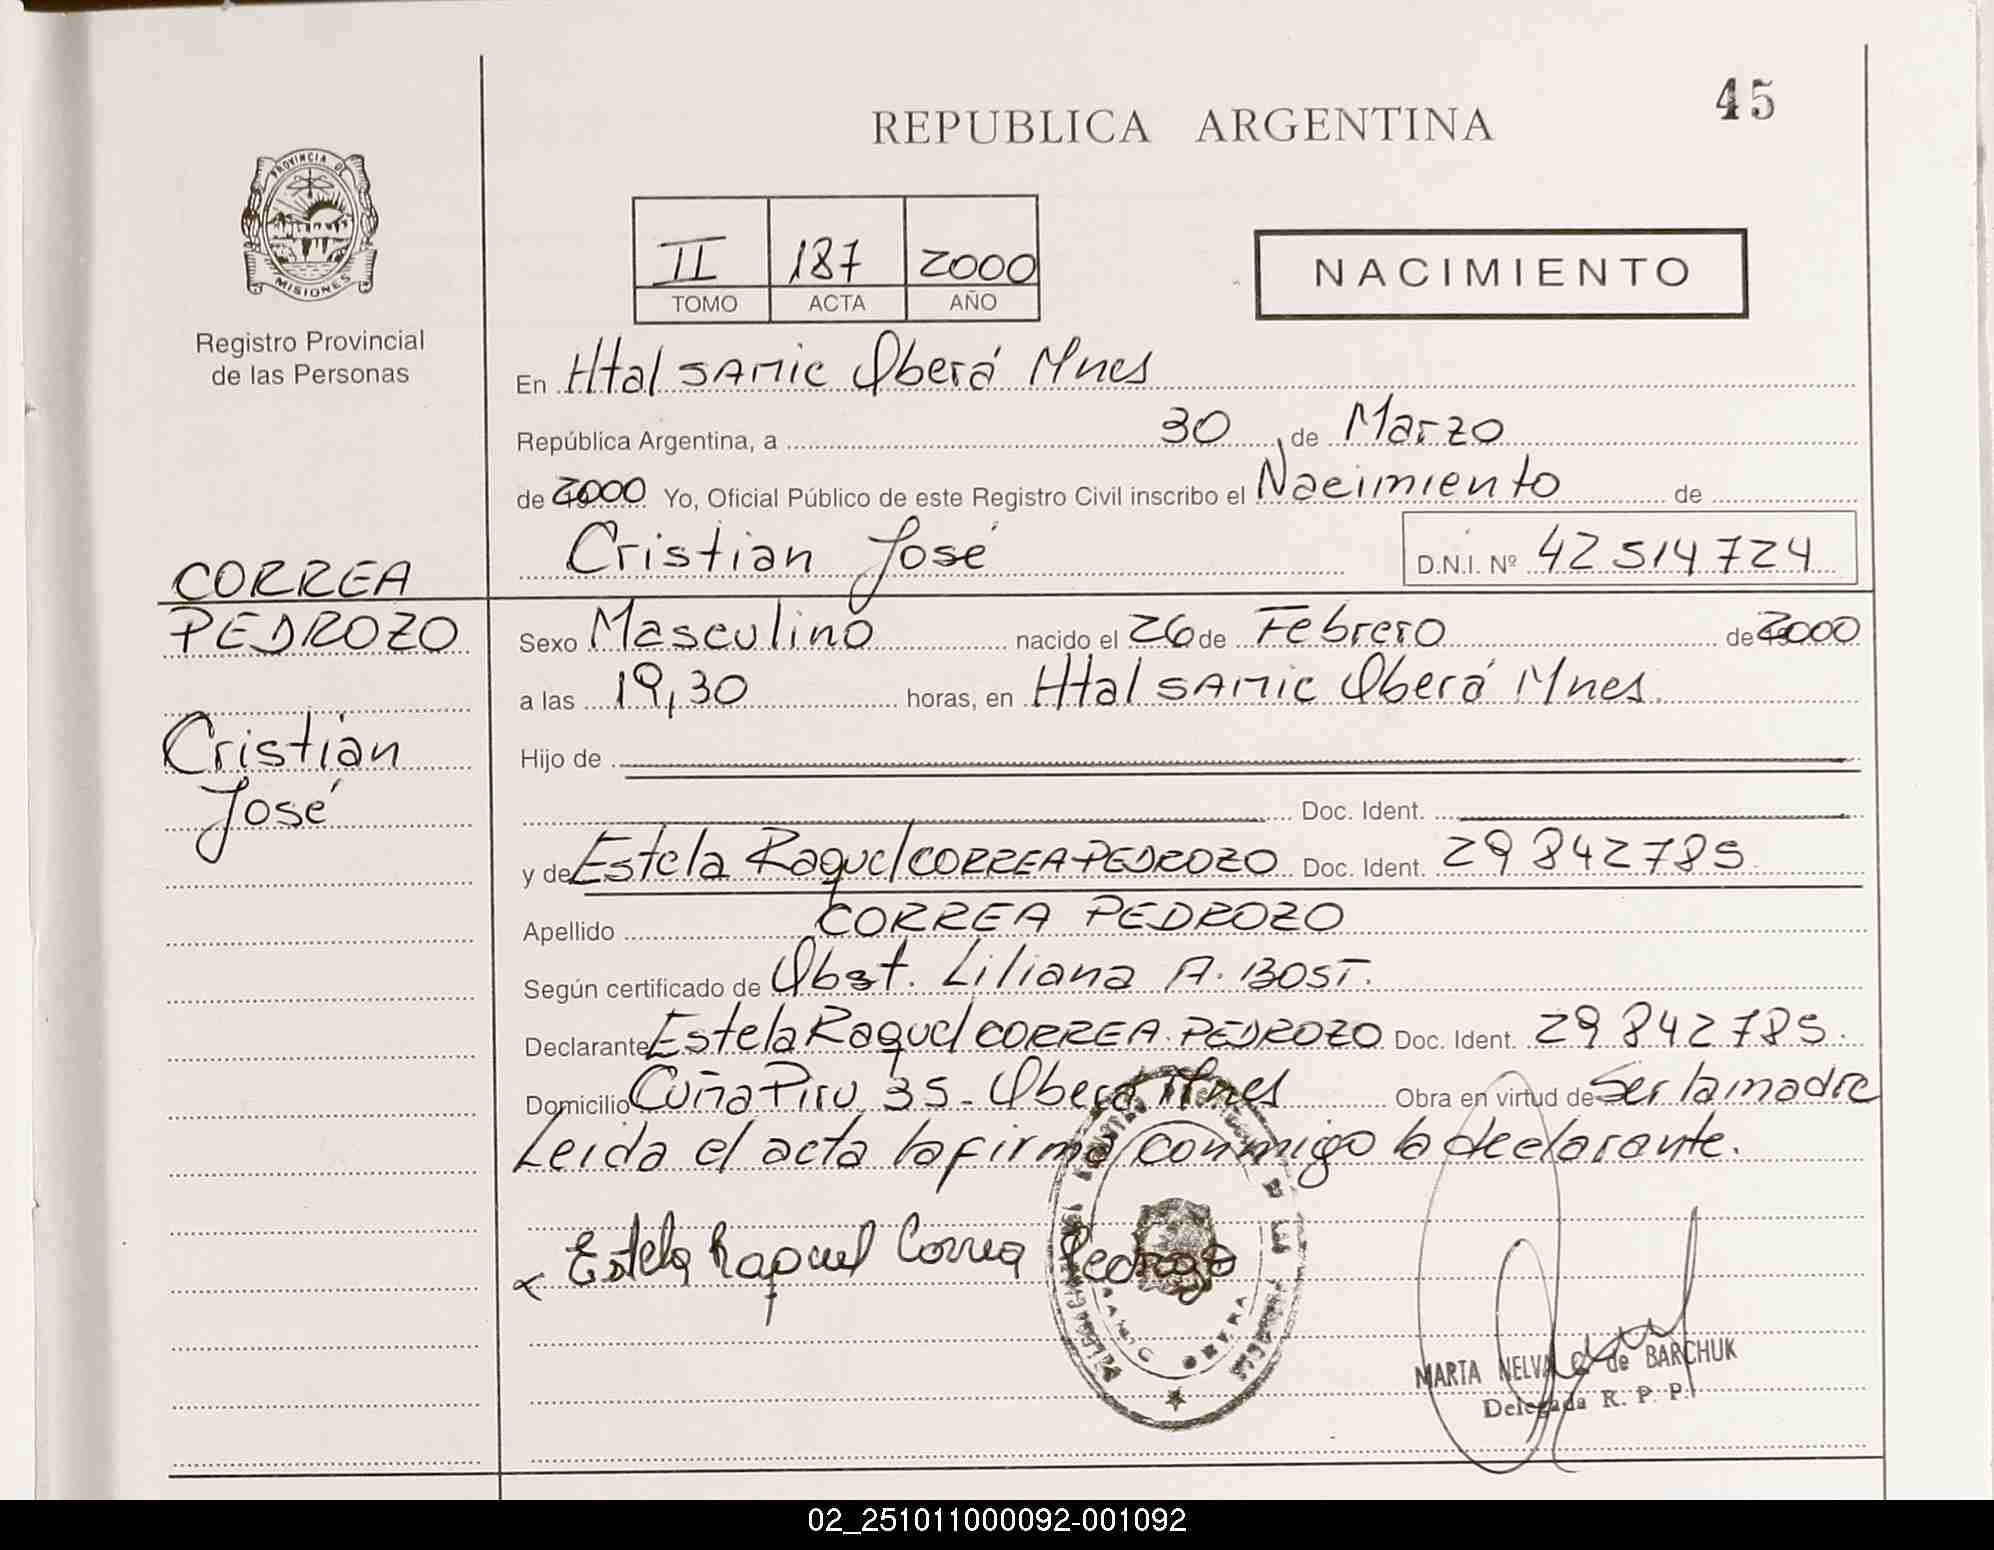 45
REPUBLICA ARGENTINA
PROVINCIA DE
MISIONES
Registro Provincial
de las Personas
II 187 2000
TOMO ACTA AÑO
NACIMIENTO
En Htal SAMIC Oberá Mnes
República Argentina, a 30 de Marzo
de 2000 Yo, Oficial Público de este Registro Civil inscribo el Nacimiento de
Cristian José D.N.I. Nº 42514724
CORREA
PEDROZO
Cristian
José
Sexo Masculino nacido el 26 de Febrero de 2000
a las 19,30 horas, en Htal SAMIC Oberá Mnes.
Hijo de
Doc. Ident.
y de Estela Raquel CORREA PEDROZO Doc. Ident. 29 842785.
Apellido CORREA PEDROZO
Según certificado de Obst. Liliana A. BOST.
Declarante Estela Raquel CORREA PEDROZO Doc. Ident. 29 842785.
Domicilio Cuña Piru 35 - Oberá Mnes Obra en virtud de Ser la madre
Leida el acta la firma conmigo la declarante.
Estela Raquel Correa Pedrozo
SAMIC OBERA
MARTA NELVA de BARCHUK
Delegada R. P. P.
02_251011000092-001092